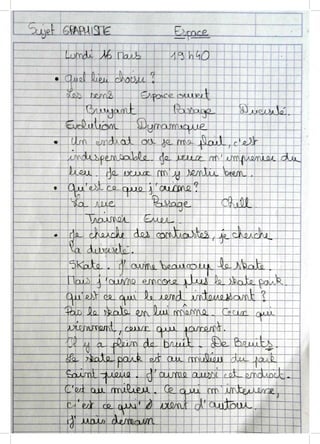 Sujet GRAPHISTE Espace
Lundi 16 Mars 19h40
• Quel lieu choisir ?
Les sens Espace ouvert
Bruyant Passage Diversité.
Evolution Dynamique
• Un endroit où je me plait, c'est
indispensable. Je veux m'imprégner du
lieu. Je veux m'y sentir bien.
• Qu'est ce que j'aime ?
La rue Passage Chill
Trainer Errer.
• Je cherche des contrastes, je cherche
la diversité.
Skate. J'aime beaucoup le skate.
Mais j'aime encore plus le skate park.
Qu'est ce qui le rend intéressant ?
Pas le skate en lui même. Ceux qui
viennent, ceux qui passent.
Il y a plein de bruit. De Bruits.
Le skate park est au milieu du parc
Saint pierre. J'aime aussi cet endroit.
C'est au milieu. Ce qui m'intéresse,
c'est ce qui vient d'autour.
J'irais demain